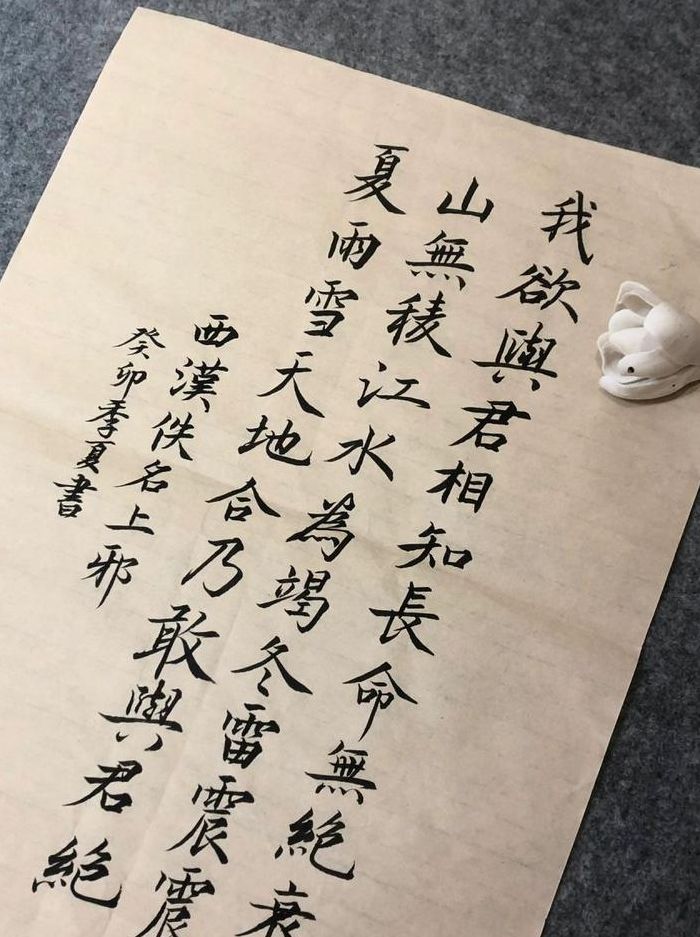 我欲與君相知長命無絕衰
山無稜江水為竭冬雷震震
夏雨雪天地合乃敢與君絕
西漢佚名上邪
癸卯季夏書